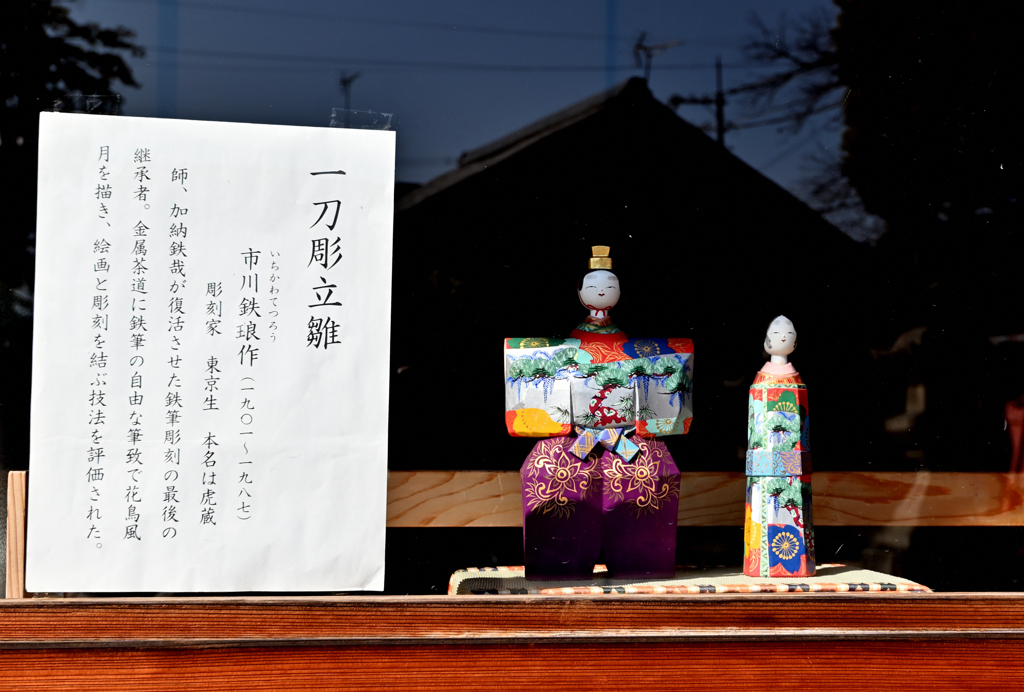 一刀彫立雛
いちかわてつろう
市川鉄琅作（一九〇一～一九八七）
彫刻家　東京生　本名は虎蔵
師、加納鉄哉が復活させた鉄筆彫刻の最後の
継承者。金属茶道に鉄筆の自由な筆致で花鳥風
月を描き、絵画と彫刻を結ぶ技法を評価された。